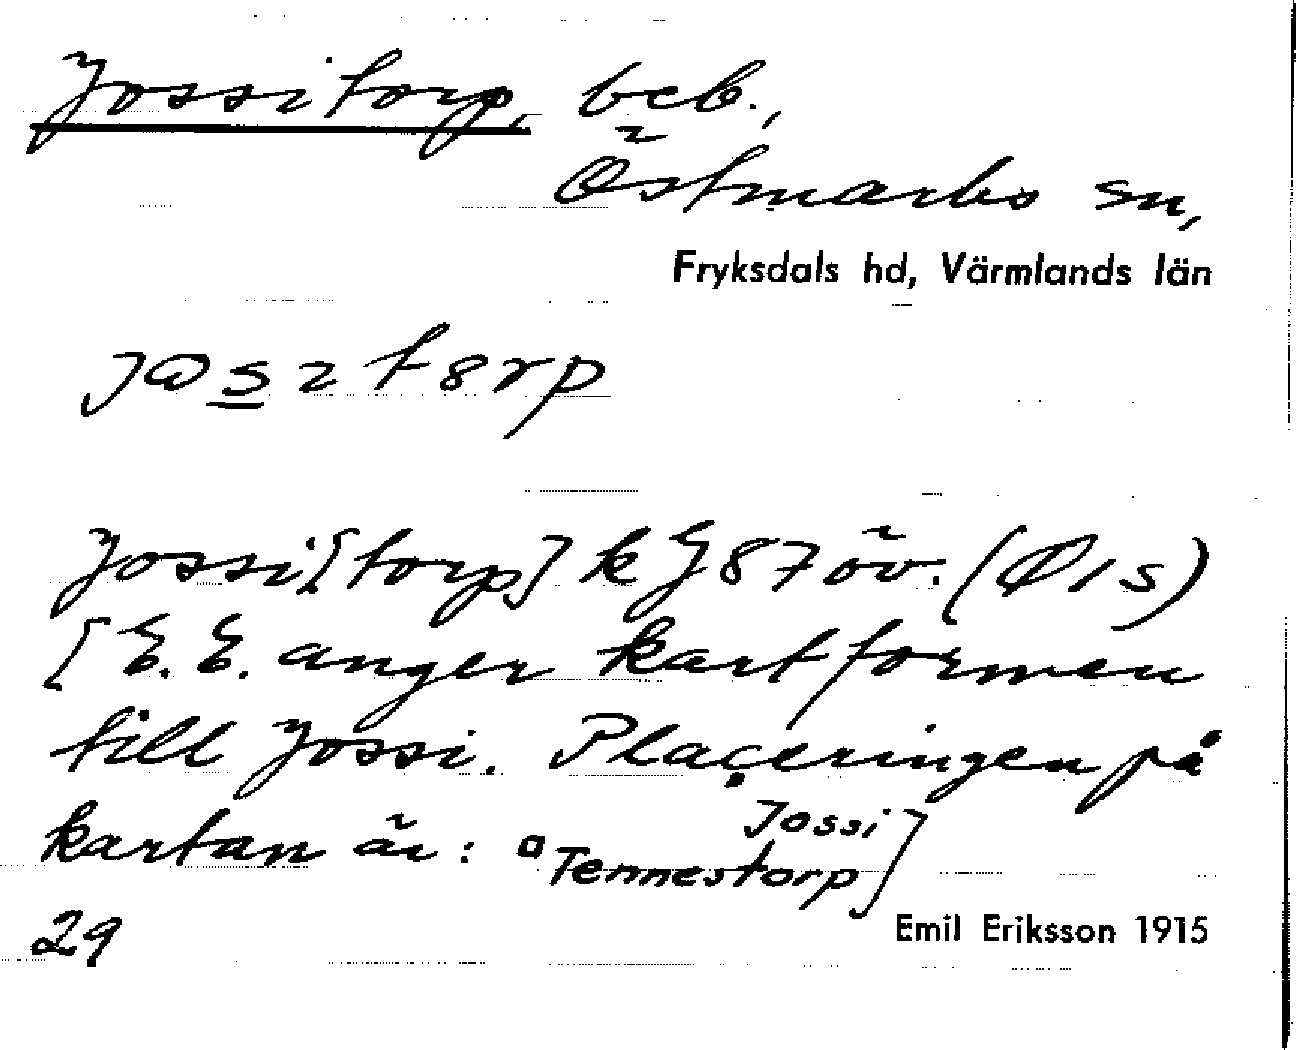 Jossitorp, beb.,
Östmarks sn,
Fryksdals hd, Värmlands län
Jossi[torp] k J87öv. (Ø1s)
[E. E. anger kartformen
till Jossi. Placeringen på
kartan är: Jossi
Tennestorp]
29
Emil Eriksson 1915